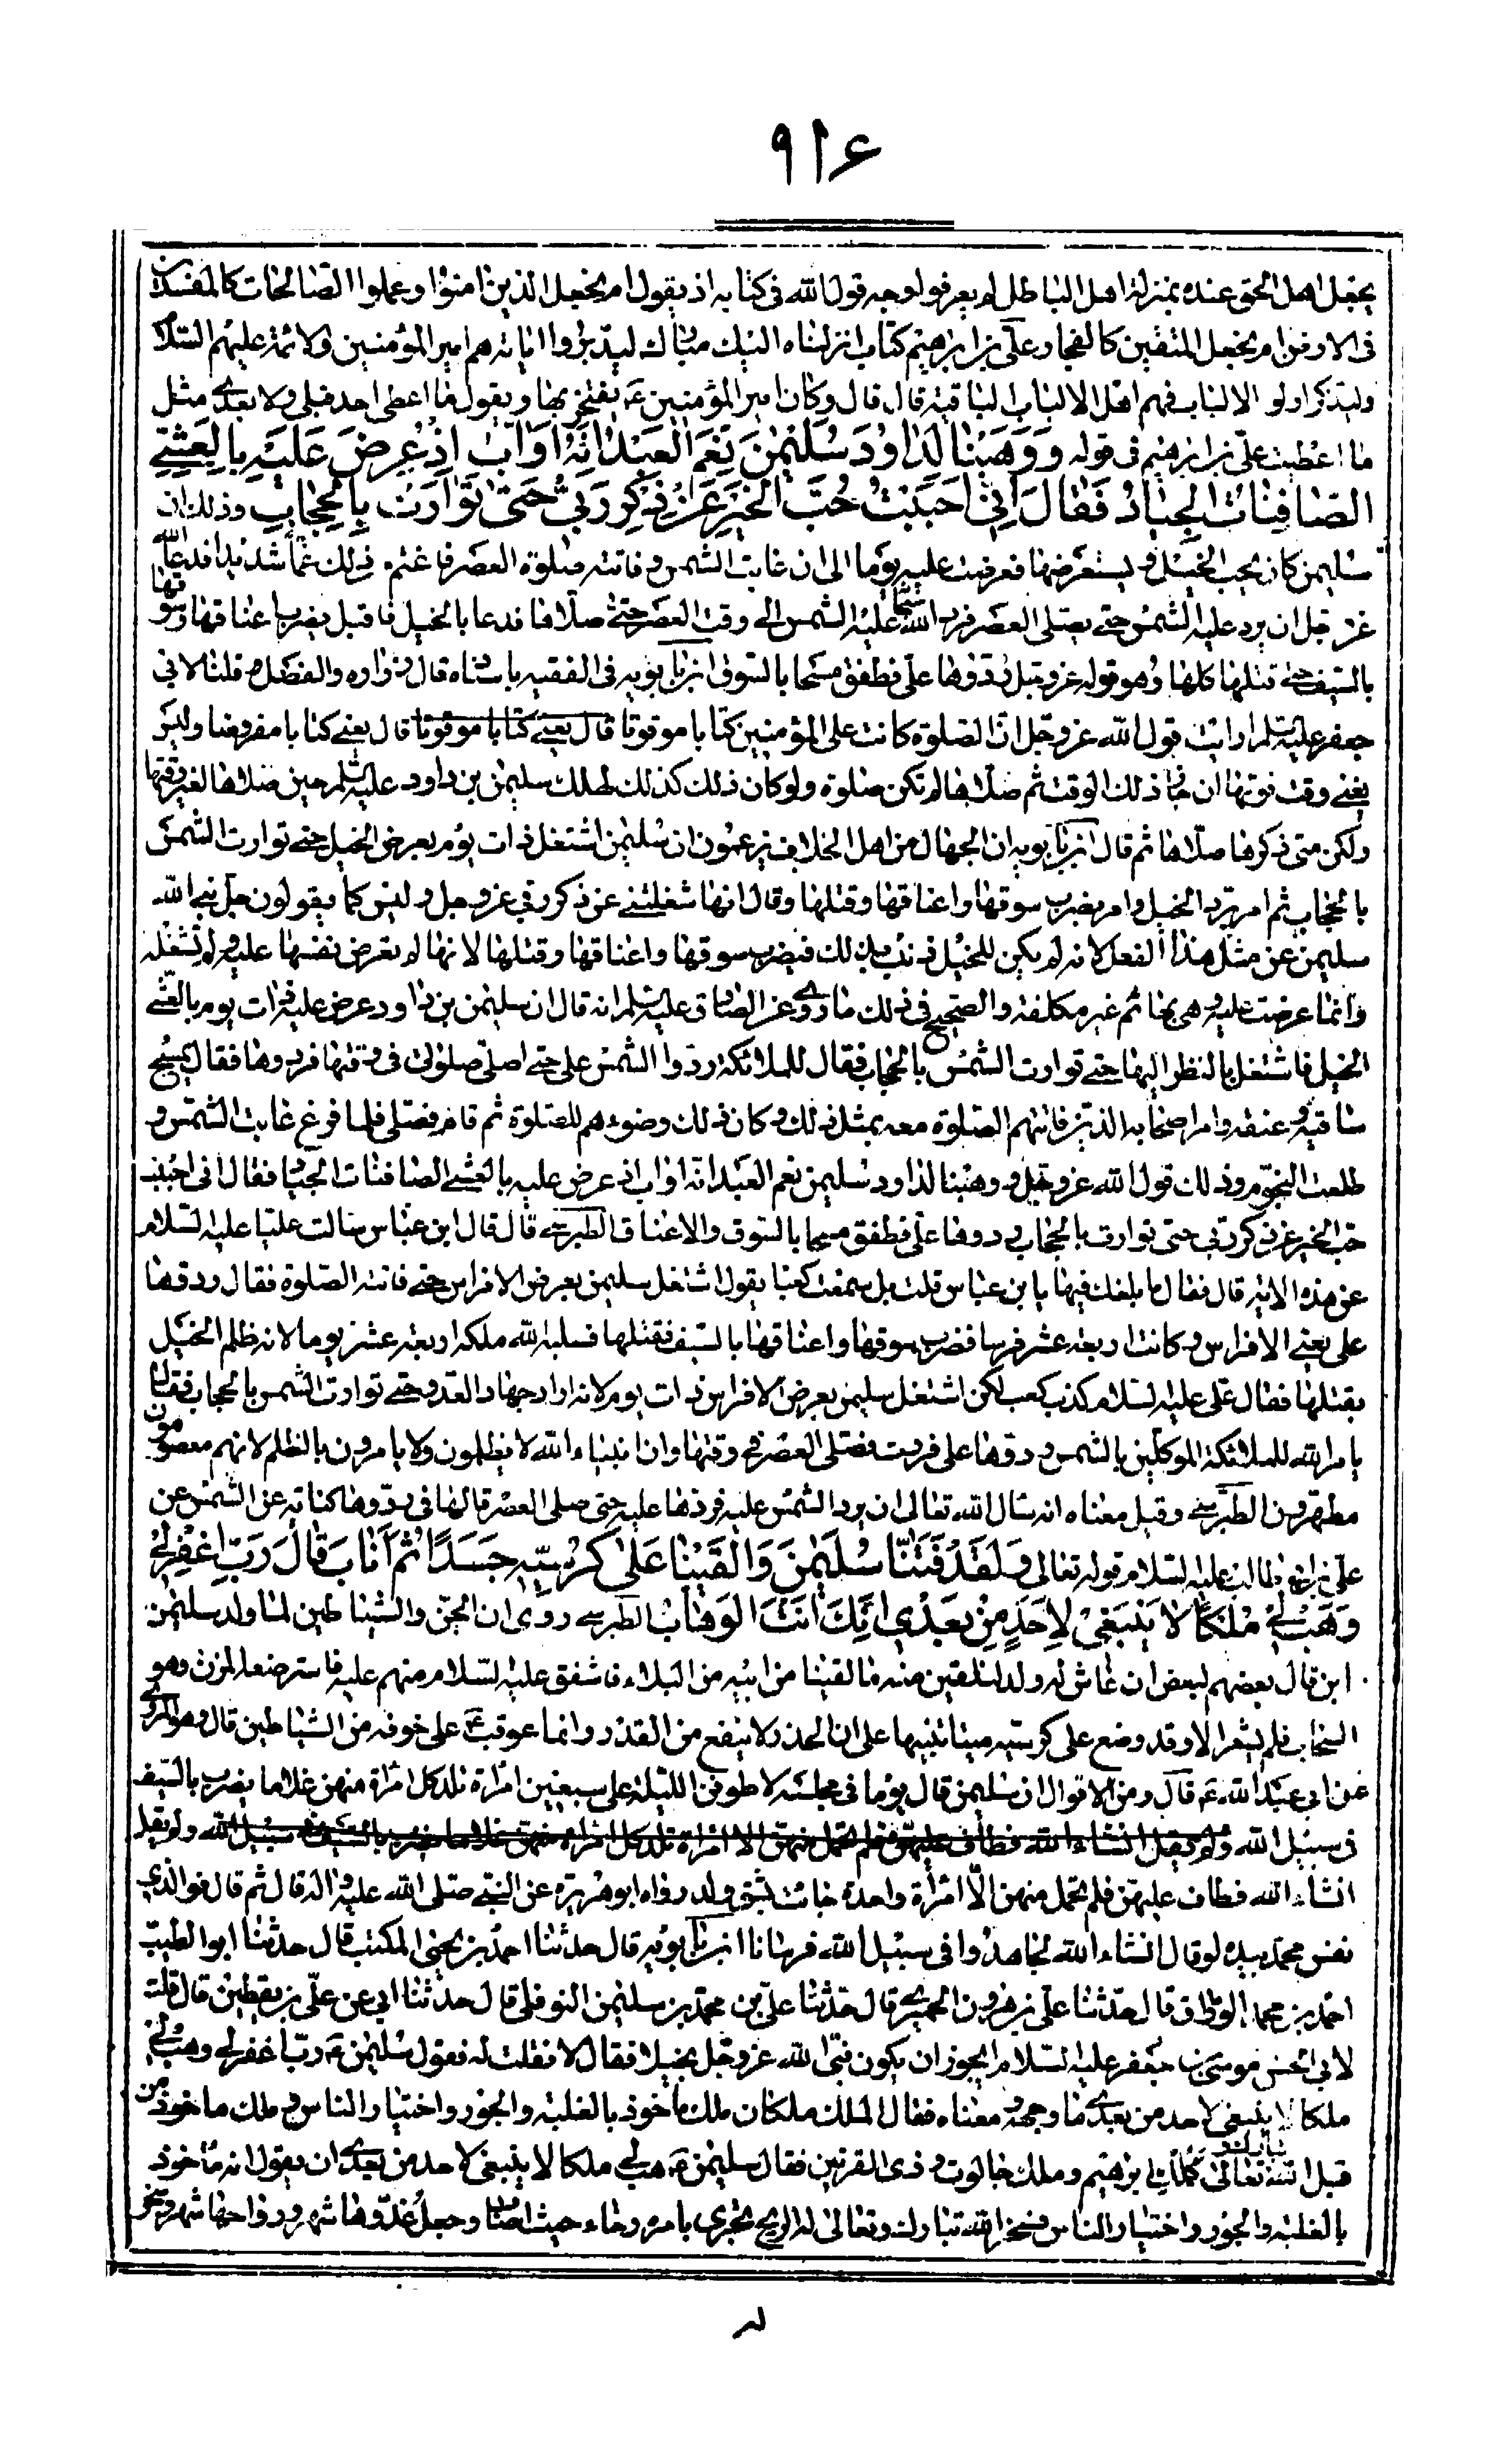 ٩١۶
يجعل اهل الحق عنده بمنزلة اهل الباطل او لم يعرفوا وجه قول الله فى كتابه اذ يقول ام نجعل الذين امنوا وعملوا الصالحات كالمفسدين
فى الارض ام نجعل المتقين كالفجار على بن ابرهيم كتاب انزلناه اليك مبارك ليدبروا اياته هم امير المؤمنين والائمة عليهم السلام
وليتذكر اولو الالباب فهم اهل الالباب الباقية قال قال وكان امير المؤمنين ع يفتخر بها ويقول ما اعطى احد قبلى ولا بعدى مثل
ما اعطيت على بن ابرهيم فى قوله ووَهَبْنَا لِدَاوُدَ سُلَيْمٰنَ نِعْمَ الْعَبْدُ اِنَّهُ اَوَّابٌ اِذْ عُرِضَ عَلَيْهِ بِالْعَشِيِّ
الصَّافِنَاتُ الْجِيَادُ فَقَالَ اِنِّي اَحْبَبْتُ حُبَّ الْخَيْرِ عَنْ ذِكْرِ رَبِّي حَتّىٰ تَوَارَتْ بِالْحِجَابِ وذلك ان
سليمن كان يحب الخيل ويستعرضها فعرضت عليه يوما الى ان غابت الشمس وفاتته صلوة العصر فاغتم من ذلك غما شديدا فدعا الله
عز وجل ان يرد عليه الشمس حتى يصلى العصر فرد الله سبحانه عليه الشمس الى وقت العصر حتى صلاها فدعا بالخيل فاقبل يضرب اعناقها وسوقها
بالسيف حتى قتلها كلها وهو قوله عز وجل ردوها على فطفق مسحا بالسوق ابن بابويه فى الفقيه باسناده قال زرارة والفضل قلنا لابى
جعفر عليه السلم ارايت قول الله عز وجل ان الصلوة كانت على المؤمنين كتابا موقوتا قال يعنى كتابا موقوتا قال يعنى كتابا مفروضا وليس
يعنى وقت فوتها ان جاز ذلك الوقت ثم صلاها لم تكن صلوة ولو كان ذلك كذلك لهلك سليمن بن داود عليه السلم حين صلاها لغير وقتها
ولكن متى ذكرها صلاها ثم قال ابن بابويه ان الجهال من اهل الخلاف يزعمون ان سليمن اشتغل ذات يوم بعرض الخيل حتى توارت الشمس
بالحجاب ثم امر برد الخيل وامر بضرب سوقها واعناقها وقتلها وقال انها شغلتنى عن ذكر ربى عز وجل وليس كما يقولون جل نبى الله
سليمن عن مثل هذا الفعل لانه لم يكن للخيل ذنب بذلك فيضرب سوقها واعناقها وقتلها لانها لم يعرض نفسها عليه ولم تشغله
وانما عرضت عليه وهى بهائم غير مكلفة والصحيح فى ذلك ما روى عن الصادق عليه السلم انه قال ان سليمن بن داود عرض عليه ذات يوم بالعشى
الخيل فاشتغل بالنظر اليها حتى توارت الشمس بالحجاب فقال للملائكة ردوا الشمس على حتى اصلى صلوتى فى وقتها فردوها فقال يمسح
ساقيه وعنقه وامر اصحابه الذين فاتتهم الصلوة معه بمثل ذلك وكان ذلك وضوءهم للصلوة ثم قام فصلى فلما فرغ غابت الشمس و
طلعت النجوم وذلك قول الله عز وجل ووهبنا لداود سليمن نعم العبد انه اواب اذ عرض عليه بالعشى الصافنات الجياد فقال انى احببت
حب الخير عن ذكر ربى حتى توارت بالحجاب ردوها على فطفق مسحا بالسوق والاعناق الطبرسى قال قال ابن عباس سالت عليا عليه السلام
عن هذه الاية قال فقال ما بلغك فيها يا بن عباس قلت بلى سمعت كعبا يقول اشتغل سليمن بعرض الافراس حتى فاتته الصلوة فقال ردوها
على يعنى الافراس وكانت اربعة عشر فرسا فضرب سوقها واعناقها بالسيف فقتلها فسلبه الله ملكه اربعة عشر يوما لانه ظلم الخيل
بقتلها فقال على عليه السلام كذب كعب لكن اشتغل سليمن بعرض الافراس ذات يوم لانه اراد جهاد العدو حتى توارت الشمس بالحجاب فقال
بامر الله للملائكة الموكلين بالشمس ردوها على فردت فصلى العصر فى وقتها وان انبياء الله لا يظلمون ولا يامرون بالظلم لانهم معصومون
مطهرون الطبرسى وقيل معناه انه سال الله تعالى ان يرد الشمس عليه فردها عليه حتى صلى العصر قالها فى ردوها كناية عن الشمس عن
على بن ابى طالب عليه السلام قوله تعالى وَلَقَدْ فَتَنَّا سُلَيْمٰنَ وَاَلْقَيْنَا عَلىٰ كُرْسِيِّهِ جَسَدًا ثُمَّ اَنَابَ قَالَ رَبِّ اغْفِرْ لِي
وَهَبْ لِي مُلْكًا لا يَنْبَغِي لِاَحَدٍ مِنْ بَعْدِي اِنَّكَ اَنْتَ الْوَهَّابُ الطبرسى روى ان الجن والشياطين لما ولد سليمن
ابن قال بعضهم لبعض ان عاش له ولد لنلقين منه ما لقينا من ابيه من البلاء فاشفق عليه السلام منهم عليه فاسترضعه المزن وهو
السحاب فلم يشعر الا وقد وضع على كرسيه ميتا تنبيها على ان الحذر لا ينفع من القدر وانما عوقب ع على خوفه من الشياطين قال وهو المروى
عن ابى عبد الله ع قال ومن الاقوال ان سليمن قال يوما فى مجلسه لاطوفن الليلة على سبعين امراة تلد كل امراة منهن غلاما يضرب بالسيف
فى سبيل الله ولم يقل انشاء الله فطاف عليهن فلم تحمل منهن الا امراة تلد كل امراة منهن غلاما يضرب بالسيف فى سبيل الله ولم يقل
انشاء الله فطاف عليهن فلم تحمل منهن الا امراة واحدة جائت بشق ولد رواه ابو هريرة عن النبى صلى الله عليه واله قال ثم قال فو الذى
نفس محمد بيده لو قال انشاء الله لجاهدوا فى سبيل الله فرسانا ابن بابويه قال حدثنا احمد بن يحيى المكتب قال حدثنا ابو الطيب
احمد بن محمد الوراق قال حدثنا على بن هرون الحميرى قال حدثنا على بن محمد بن سليمن النوفلى قال حدثنا ابى عن على بن يقطين قال قلت
لابى الحسن موسى بن جعفر عليه السلام ايجوز ان يكون نبى الله عز وجل بخيلا فقال لا فقلت له فقول سليمن ع رب اغفر لى وهب لى
ملكا لا ينبغى لاحد من بعدى ما وجهه ومعناه فقال الملك ملكان ملك ماخوذ بالغلبة والجور واختيار الناس وملك ماخوذ من
قبل الله تبارك وتعالى كملك ال ابرهيم وملك جالوت وذى القرنين فقال سليمن ع هب لى ملكا لا ينبغى لاحد من بعدى ان يقول انه ماخوذ
بالغلبة والجور واختيار الناس فسخر الله تبارك وتعالى له الريح تجرى بامره رخاء حيث اصاب وجعل غدوها شهر ورواحها شهر وسخر
له